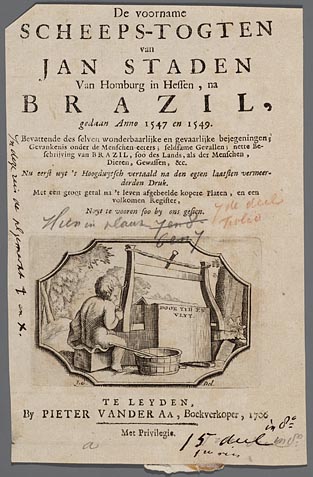 De voorname
SCHEEPS-TOGTEN
van
JAN STADEN
Van Homburg in Hessen, na
BRAZIL,
gedaan Anno 1547 en 1549.
Bevattende des selven wonderbaarlijke en gevaarlijke bejegeningen;
Gevankenis onder de Menschen-eeters; seldsame Gevallen; nette Be-
schrijving van BRAZIL, soo des Lands, als der Menschen,
Dieren, Gewassen, &c.
Nu eerst uyt 't Hoogduytsch vertaald na den egten laatsten vermeer-
derden Druk.
Met een groot getal na 't leven afgebeelde kopere Platen, en een
volkomen Register,
Noyt te vooren soo by ons gesien.
DOOR TYD EN
VLYT.
Del.
TE LEYDEN,
By PIETER VANDER AA, Boekverkoper, 1706
Met Privilegie.
in 8o
15 deel
a